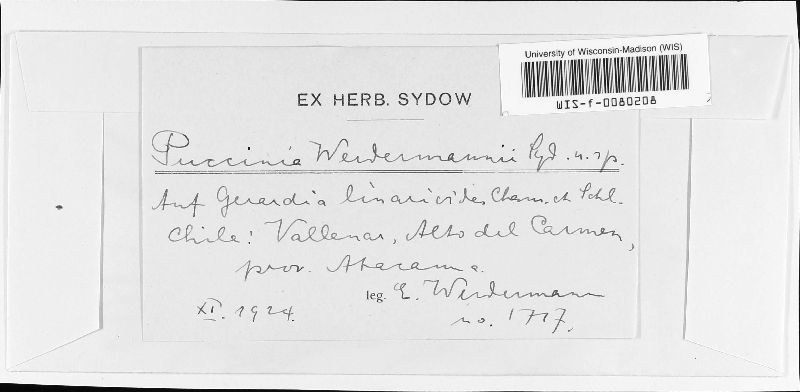 University of Wisconsin-Madison (WIS)
WIS-f-0080208
EX HERB. SYDOW
Puccinia Werdermannii Syd. n. sp.
Auf Gerardia linarioides Cham. et Schl.
Chile: Vallenar, Alto del Carmen,
prov. Atacama.
leg. E. Werdermann
XI. 1924.
no. 1717.